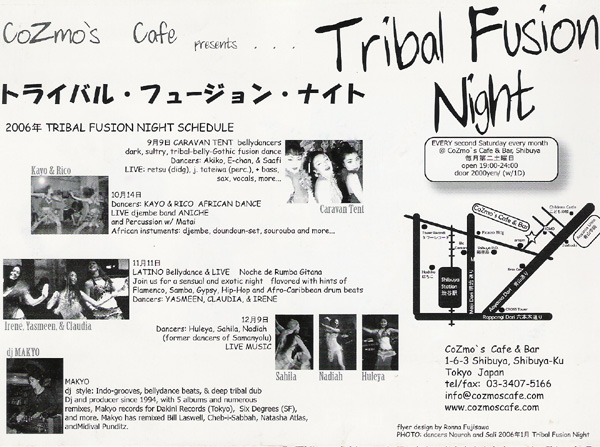 CoZmo`s Cafe presents . . .
Tribal Fusion
Night
トライバル・フュージョン・ナイト
2006年 TRIBAL FUSION NIGHT SCHEDULE
9月9日 CARAVAN TENT bellydancers
dark, sultry, tribal-belly-Gothic fusion dance
Dancers: Akiko, E-chan, & Saafi
LIVE: retsu (didg), j. tateiwa (perc.), + bass,
sax, vocals, more...
Caravan Tent
Kayo & Rico
10月14日
Dancers: KAYO & RICO AFRICAN DANCE
LIVE djembe band ANICHE
and Percussion w/ Matai
African instuments: djembe, doundoun-set, sourouba and more...
11月11日
LATINO Bellydance & LIVE Noche de Rumba Gitana
Join us for a sensual and exotic night flavored with hints of
Flamenco, Samba, Gypsy, Hip-Hop and Afro-Caribbean drum beats
Dancers: YASMEEN, CLAUDIA, & IRENE
Irene, Yasmeen, & Claudia
12月9日
Dancers: Huleya, Sahila, Nadiah
(former dancers of Samanyolu)
LIVE MUSIC
Sahila
Nadiah
Huleya
dj MAKYO
MAKYO
dj style: Indo-grooves, bellydance beats, & deep tribal dub
Dj and producer since 1994, with 5 albums and numerous
remixes, Makyo records for Dakini Records (Tokyo), Six Degrees (SF),
and more. Makyo has remixed Bill Laswell, Cheb-i-Sabbah, Natasha Atlas,
andMidival Punditz.
EVERY second Saturday every month
@ CoZmo`s Cafe & Bar, Shibuya
毎月第二土曜日
open 19:00-24:00
door 2000yen/ (w/1D)
CoZmo`s Cafe & Bar
Shibuya
Station
渋谷駅
Meiji Dori 明治通り
Roppongi Dori 六本木通り
CoZmo`s Cafe & Bar
1-6-3 Shibuya, Shibuya-Ku
Tokyo Japan
tel/fax: 03-3407-5166
info@cozmoscafe.com
www.cozmoscafe.com
flyer design by Ronna Fujisawa
PHOTO: dancers Nourah and Sali 2006年1月 Tribal Fusion Night